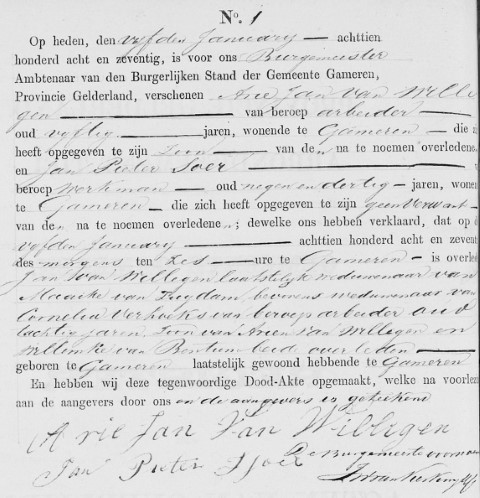 No. 1
Op heden, den vijfden January — achttien
honderd acht en zeventig, is voor ons Burgemeester
Ambtenaar van den Burgerlijken Stand der Gemeente Gameren,
Provincie Gelderland, verschenen Arie Jan van Wille
gen — van beroep arbeider —
oud vyftig — jaren, wonende te Gameren — die z
heeft opgegeven te zijn Zoon — van den na te noemen overledene
en Jan Pieter Soer — v
beroep Werkman — oud negen en dertig — jaren, wonen
te Gameren — die zich heeft opgegeven te zijn geen Verwant —
van den na te noemen overledene; dewelke ons hebben verklaard, dat op d
vijfden January — achttien honderd acht en zevent
des morgens ten zes — ure te Gameren — is overle
Jan van Willegen laatstelijk weduwenaar van
Maaike van Zuydam bevorens weduwenaar van
Cornelia Verhoeks van beroep arbeider oud
tachtig jaren, Zoon van Arien van Willegen en
Willemke van Bentum beid overleden —
geboren te Gameren laatstelijk gewoond hebbende te Gameren
En hebben wij deze tegenwoordige Dood-Akte opgemaakt, welke na voorlez
aan de aangevers door ons en de aangevers is geteekend
Arie Jan Van Willegen
Jan Pieter Soer De Burgemeester voornoemd